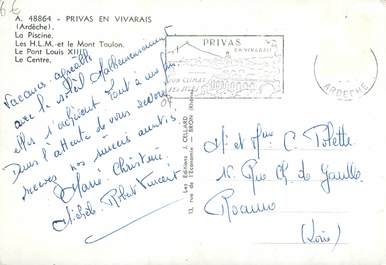 6€
A. 48864 - PRIVAS EN VIVARAIS
(Ardèche)
La Piscine.
Les H.L.M. et le Mont Toulon.
Le Pont Louis XIII
Le Centre.
Vacances agréables
avec le soleil. Malheureusement
elles s'achèvent. Tout à une fin.
Dans l'attente de vous revoir
recevez nos meilleurs amitiés
Marie Christine
Michèle Robert Vincent
PRIVAS
EN VIVARAIS
SON CLIMAT
SES SITES
07
ARDECHE
Les Editions J. CELLARD
13, rue de l'Economie - BRON (Rhône)
Mr et Mme C.
Rue Ch de Gaulle
Roanne
(Loire)